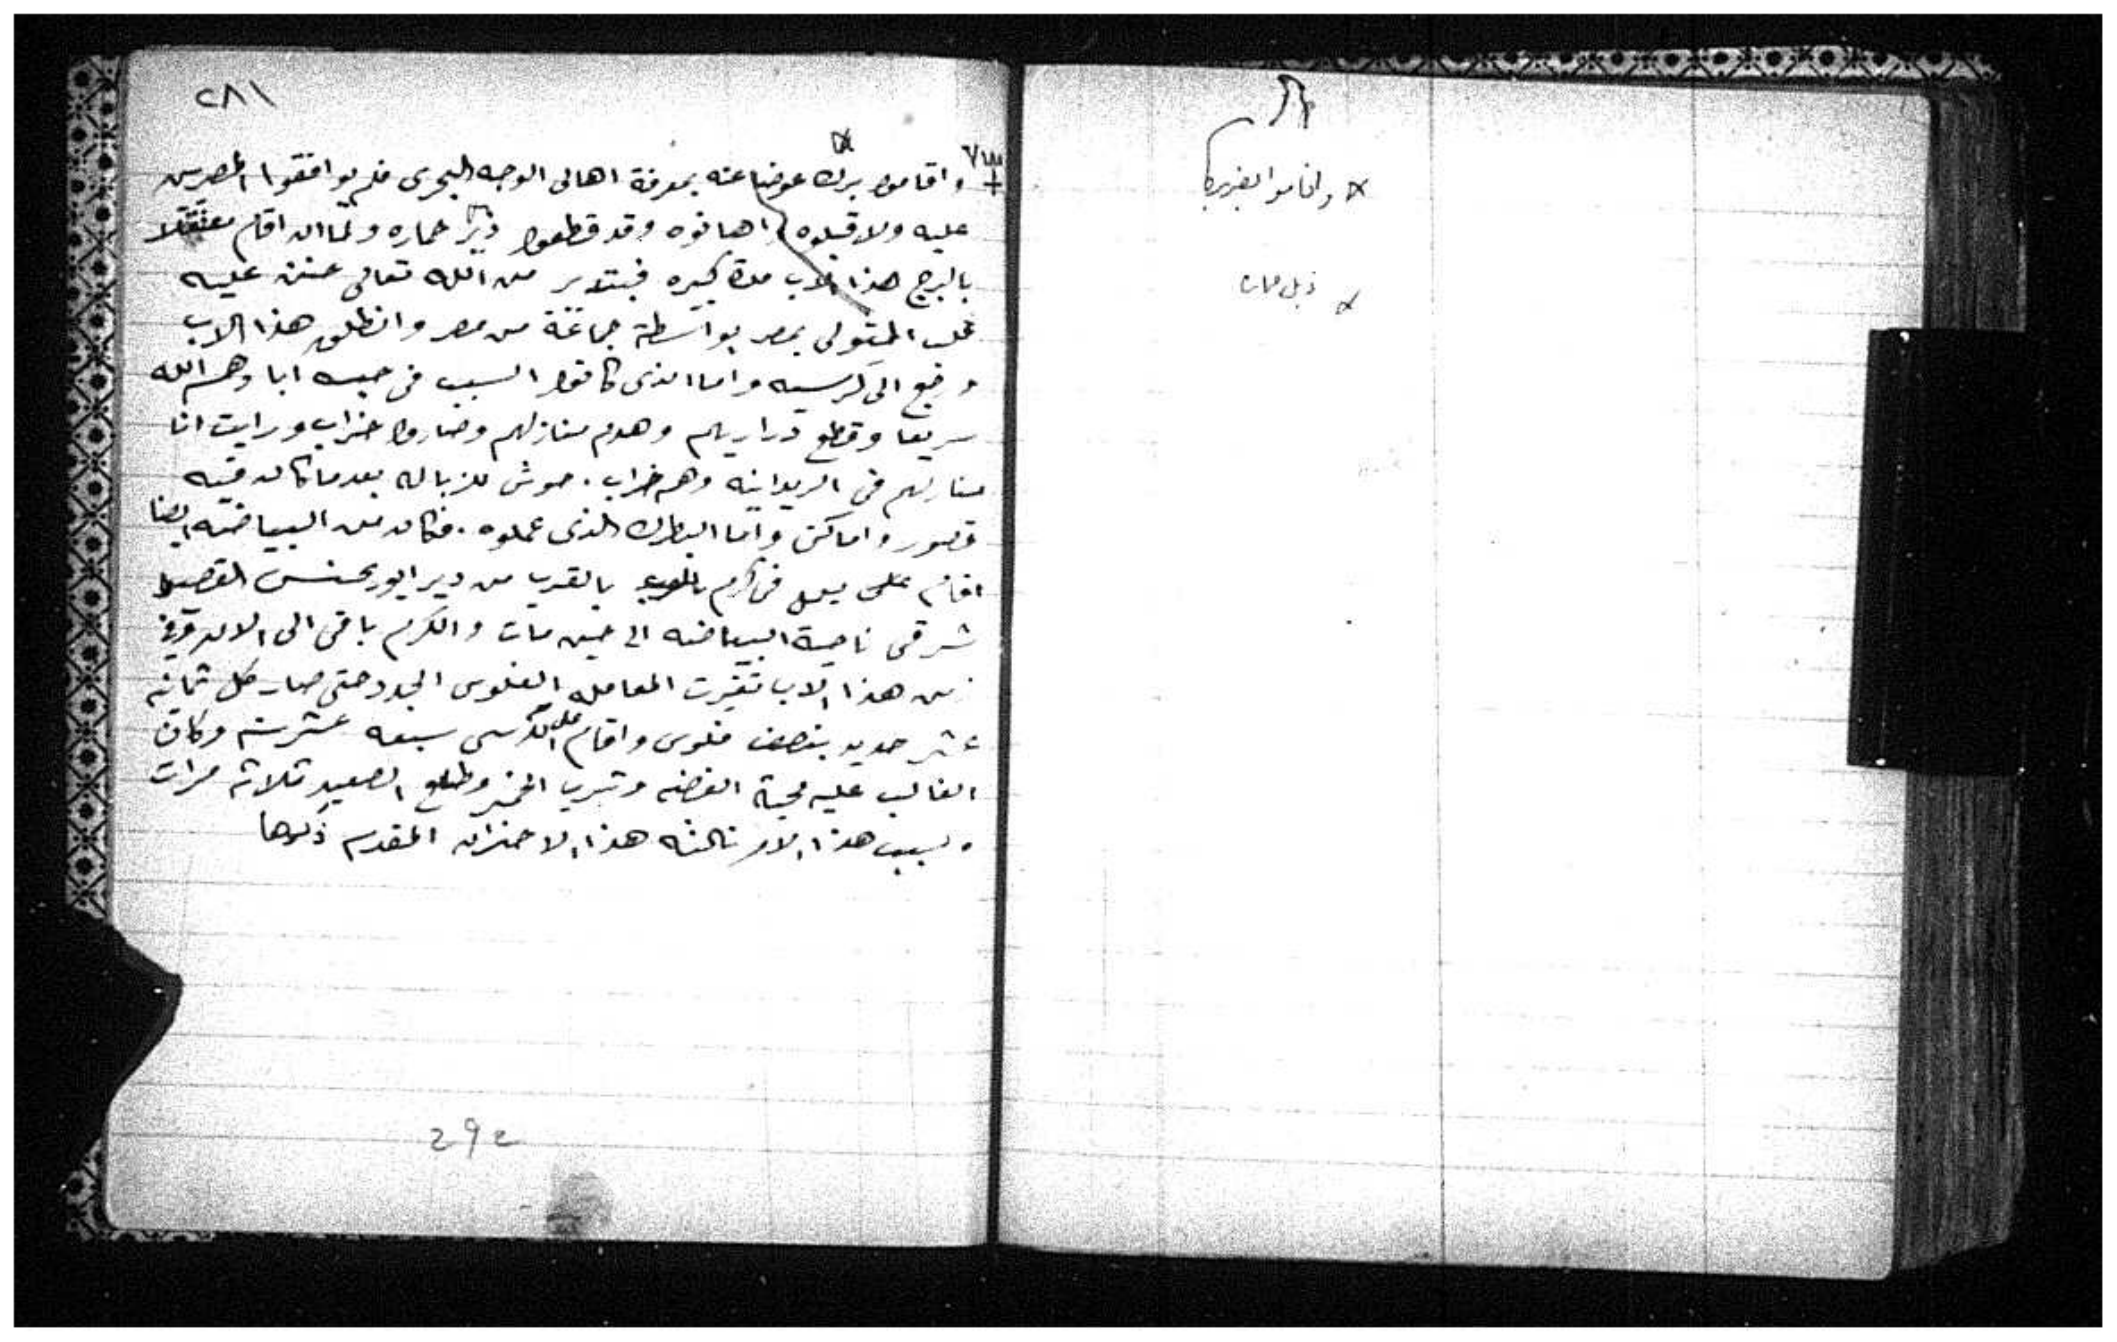 ٢٨١
واقاموا بدله عوضا عنه بمعرفة اهالى الوجه البحرى فلم يوافقوا المصريين
عليه ولا قبلوه اهانوه وقد قطعوا حماره ولما ان اقام معتقلا
بالبرج هذا الاب مدة كبيره من الله تعالى عليه
قلب المتولى بمصر بواسطة جماعة من مصر وانطلق هذا الاب
ورجع الى كرسيه واما الذى كانوا السبب فى حبسه ابادهم الله
سريعا وقطع دراريهم وهدم منازلهم وصاروا خراب ورايت انا
منازلهم فى الريدانيه وهم خراب . حوش للزباله بعد ما كان فيه
قصور واماكن واما البطرك الذى عملوه . فكان من البياضيه ايضا
اقام فى كرم بالقرب من دير ابو يحنس القصير
شرقى ناحية البياضيه الى حين مات والكرم باقى الى الان وفى
زمن هذا الاب تغيرت المعامله الفلوس الجدد حتى صار كل ثمانيه
عشر جديد بنصف فلوس واقام على الكرسى سبعه عشر سنه وكان
الغالب عليه محبة الفضه وشرب الخمر وطلع الصعيد ثلاثه مرات
وبسبب هذا الامر نالته هذا الاحزان المقدم ذكرها
292
× واقاموا
×